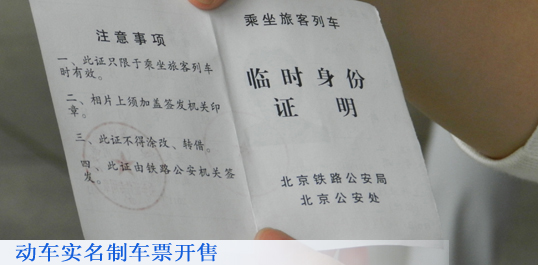 注意事项
一、此证只限于乘坐旅客列车
时有效。
二、相片上须加盖签发机关印
章。
三、此证不得涂改、转借。
四、此证由铁路公安机关签
发。
乘坐旅客列车
临时身份
证明
北京铁路公安局
北京公安处
动车实名制车票开售